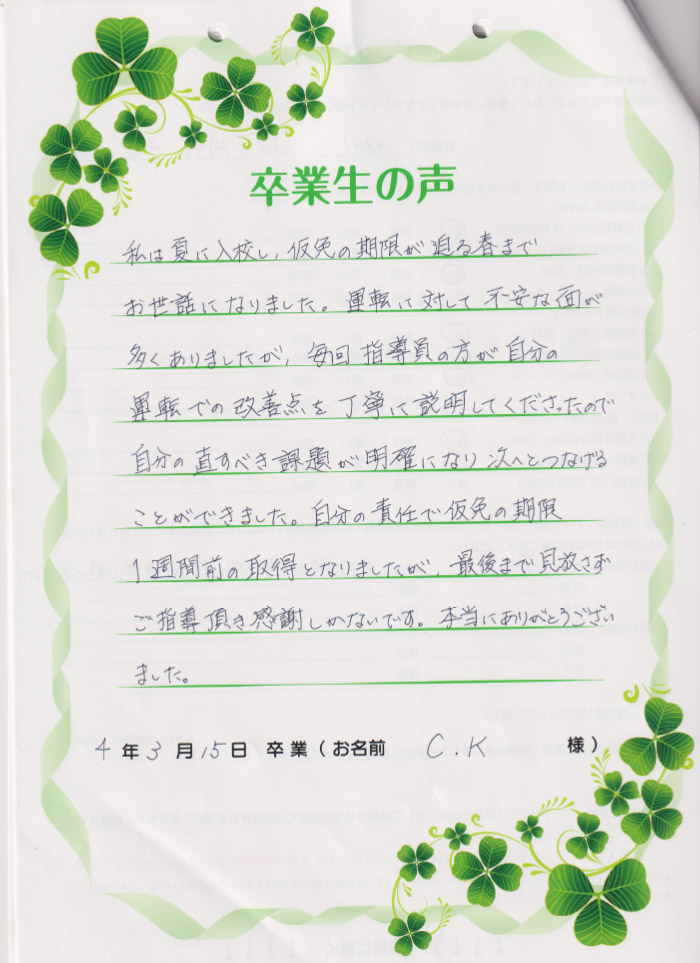 卒業生の声
私は夏に入校し、仮免の期限が迫る春まで
お世話になりました。運転に対して不安な面が
多くありましたが、毎回指導員の方が自分の
運転での改善点を丁寧に説明してくださったので
自分の直すべき課題が明確になり次へとつなげる
ことができました。自分の責任で仮免の期限
1週間前の取得となりましたが、最後まで見放さず
ご指導頂き感謝しかないです。本当にありがとうござい
ました。
4年3月15日 卒業(お名前 C.K 様)